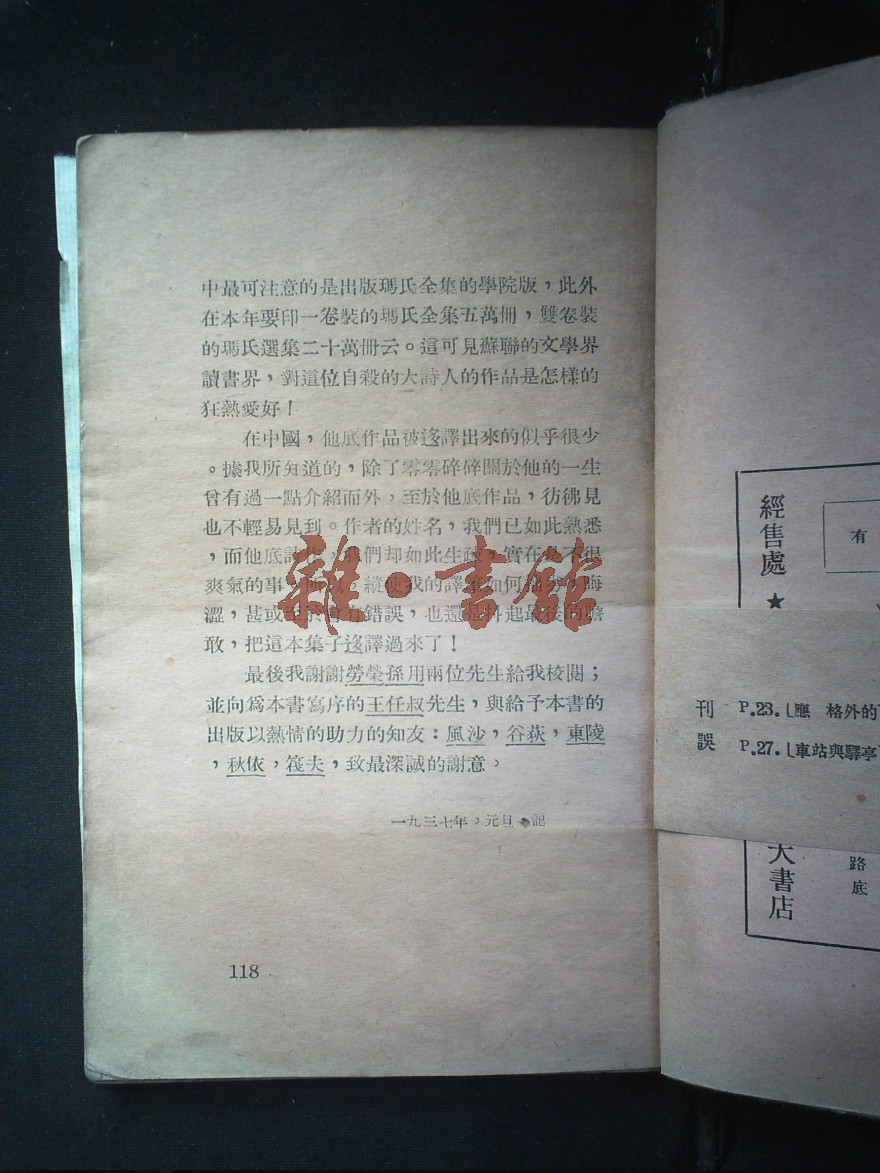 中最可注意的是出版瑪氏全集的學院版，此外
在本年要印一卷裝的瑪氏全集五萬冊，雙卷裝
的瑪氏選集二十萬冊云。這可見蘇聯的文學界
讀書界，對這位自殺的大詩人的作品是怎樣的
狂熱愛好！
在中國，他底作品被迻譯出來的似乎很少
。據我所知道的，除了零零碎碎關於他的一生
曾有過一點介紹而外，至於他底作品，彷彿見
也不輕易見到。作者的姓名，我們已如此熟悉
，而他底詩 我們却如此生疏，實在是不很
爽氣的事 縱使我的譯 如何 晦
澀，甚或至於會有錯誤，也還是抖起最後的膽
敢，把這本集子迻譯過來了！
最後我謝謝勞榮孫用兩位先生給我校閱；
並向爲本書寫序的王任叔先生，與給予本書的
出版以熱情的助力的知友：風沙，谷荻，東陵
，秋依，筏夫，致最深誠的謝意。
一九三七年，元旦，記
118
雜·書館
經售處
★
有
刊誤
P.23.⌊應 格外的
P.27.⌊車站與驛亭
大書店
路底